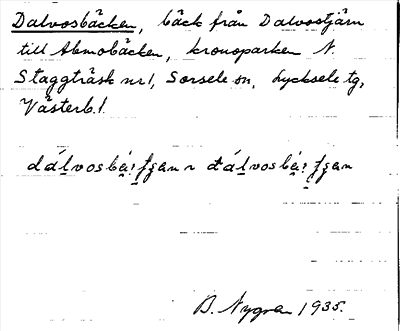 Dalvosbäcken, bäck från Dalvostjärn
till Abmobäcken, kronoparken N.
Staggträsk nr 1, Sorsele sn, Lycksele tg,
Västerb. l.
B. Nygren 1935.